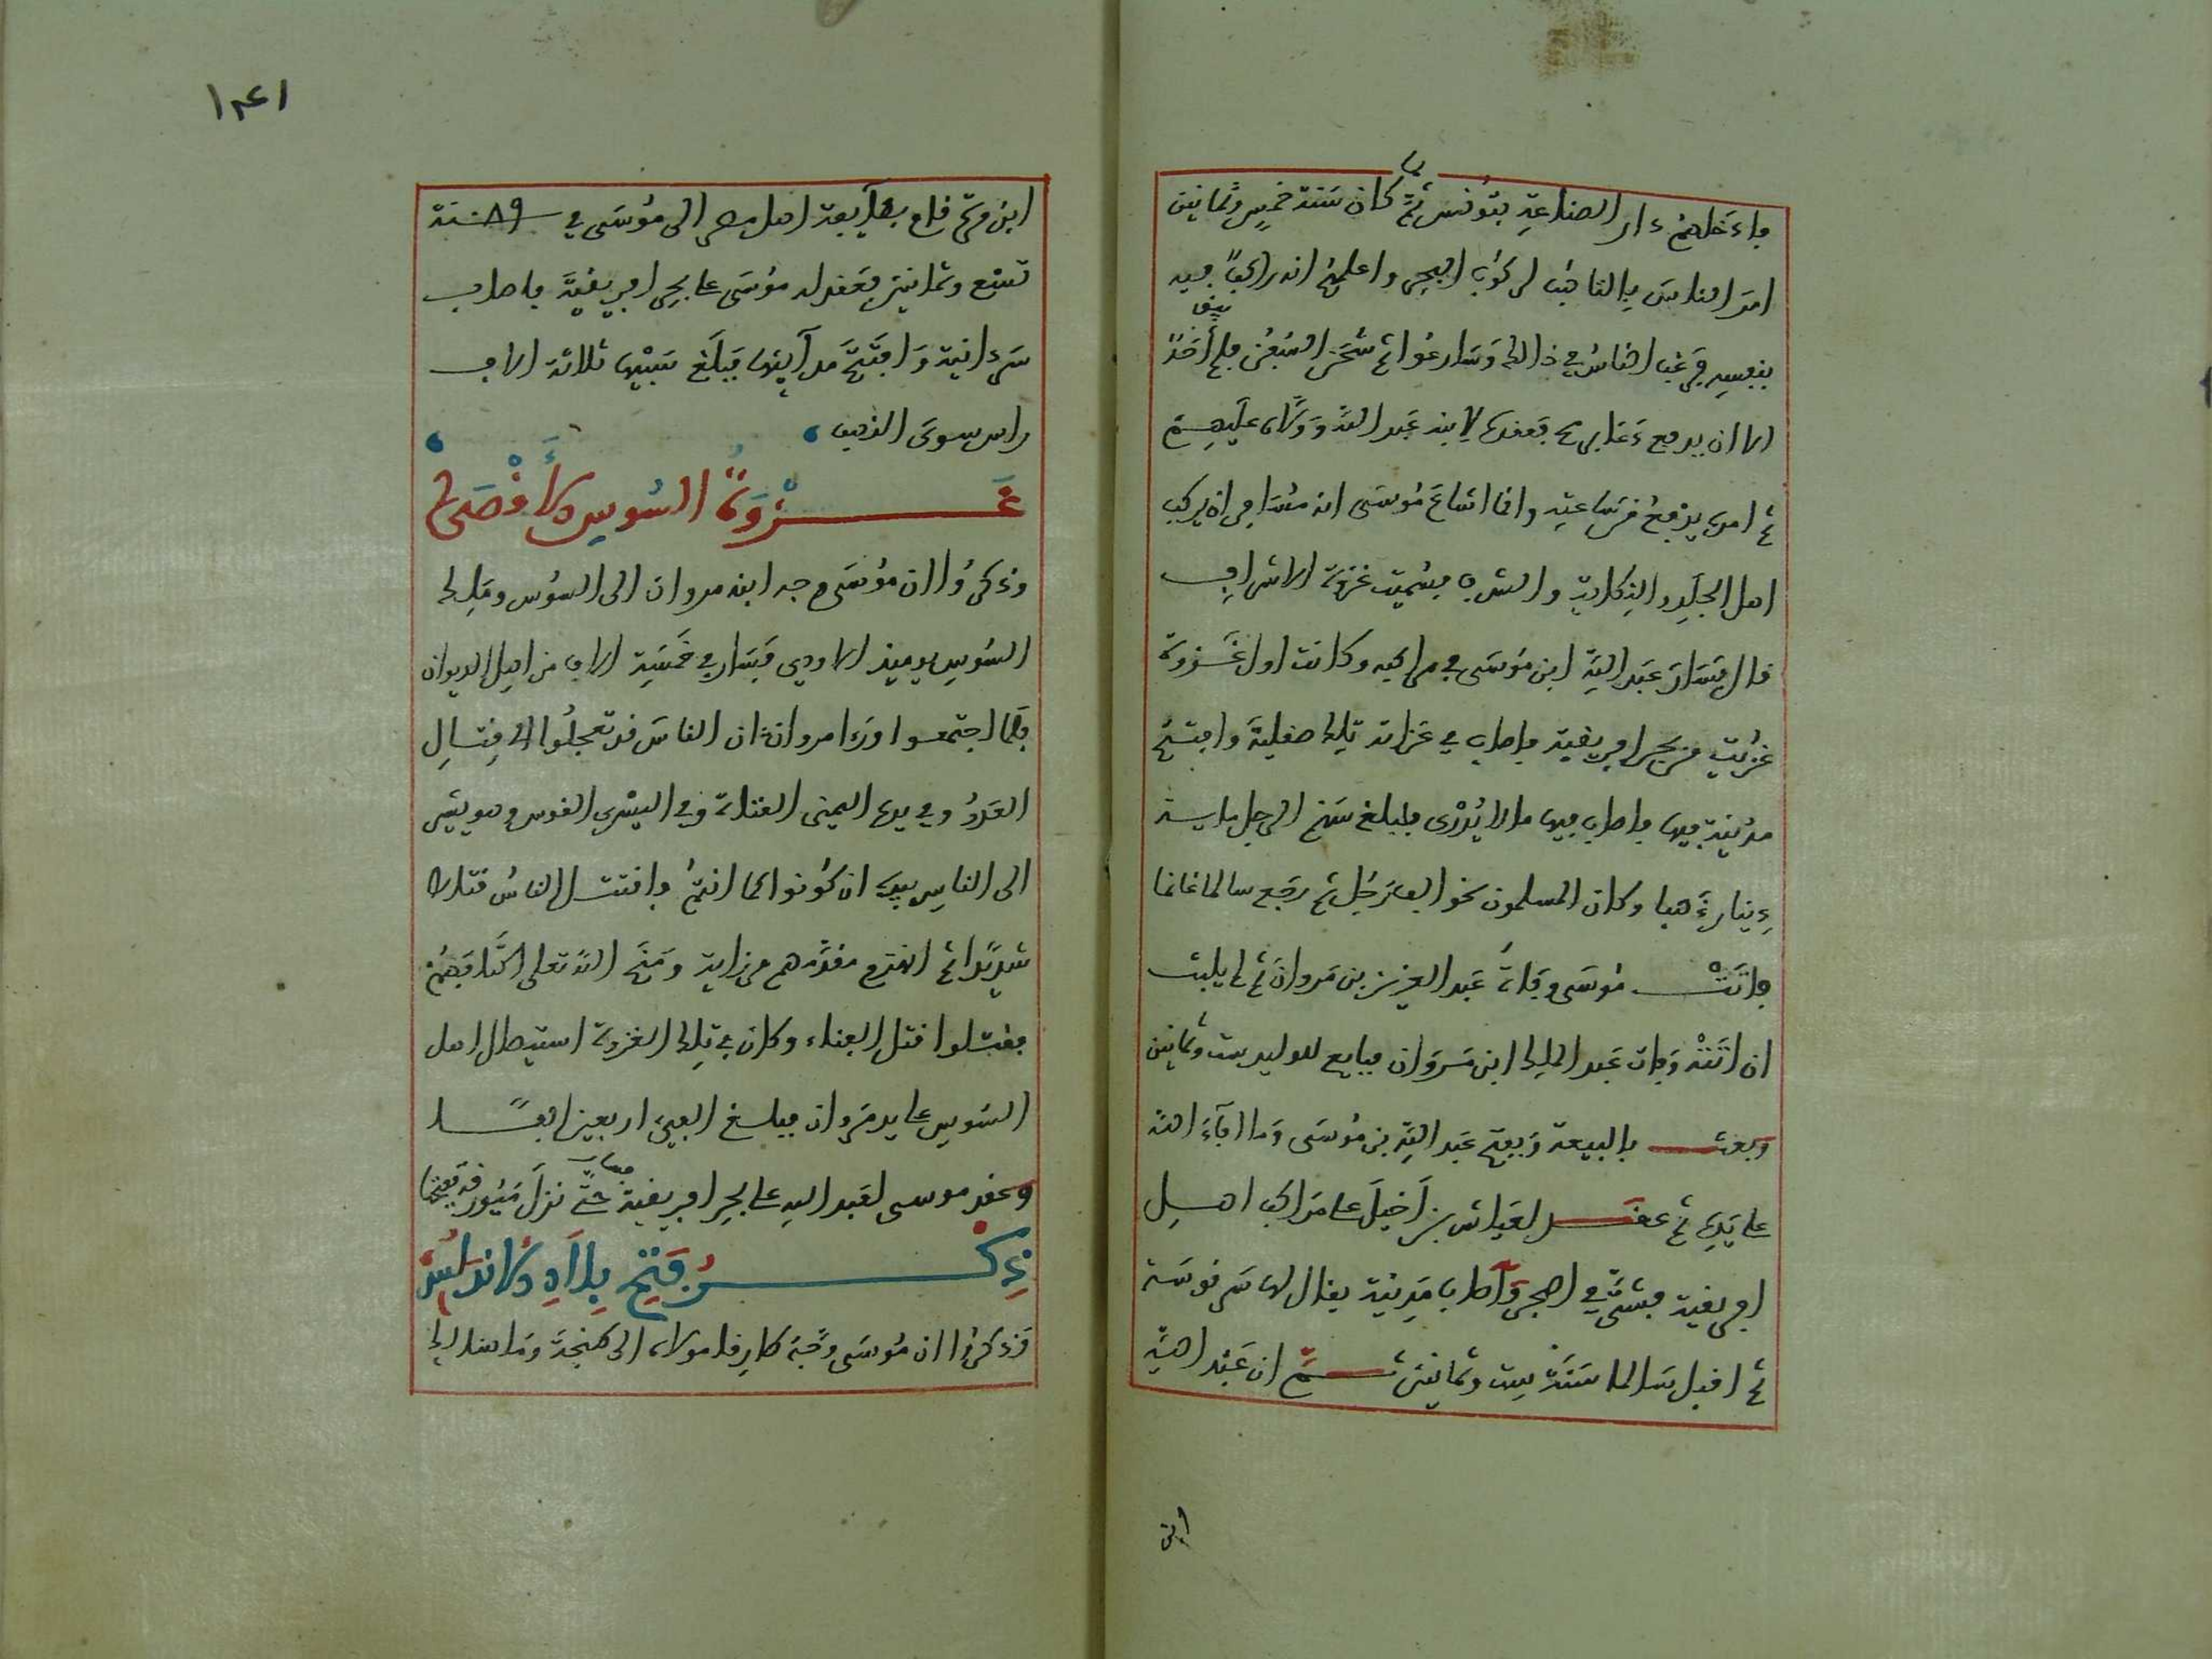 فادخلهم دار الصناعة بتونس ثم لما كان سنة خمس وثمانين
امر الناس بالتاهب لركوب البحر واعلمهم انه راكبا فيه
بنفسه فرغب الناس في ذالك وسارعوا ثم شحن السفن فلم يبق أحدا
الا ان يرفع فعقده لابنه عبد الله وولاه عليهم
ثم امره يرفع من ساعته وانما اشاع موسى انه ان يركب
اهل الجلد والنكاية والشرف فسميت غزوة الاشراف
قال فسار عبد الله ابن موسى في مراكبه وكانت اول غزوة
غزيت من بحر افريقية فاصاب في غزاته تلك صقلية وافتتح
مدينة فيها فاصاب فيها ما لا يدرى فبلغ سهم الرجل ماية
دينار ذهبا وكان المسلمون نحو الف رجل ثم رجع سالما غانما
فاتت موسى وفاة عبد العزيز بن مروان ثم لم يلبث
ان اتته وفات عبد الملك ابن مروان فبايع للوليد ست وثمانين
وبعث بالبيعة وبفتح عبد الله بن موسى وما افاء الله
على يديه ثم عقد لعياش بن اخيل على مراكب اهل
افريقية فشتى في البحر واصاب مدينة يقال لها سرقوسة
ثم اقبل سالما سنة ست وثمانين ثم ان عبد الله
ابن
١٤١
ابن مرة قام بطايعة اهل مصر الى موسى في سنة ٨٩
تسع وثمانين فعقد له موسى على بحر افريقية فاصاب
سردانية وافتتح مداينها فبلغ سبيها ثلاثة الاف
راس سوى الذهب
غزوة السوس الأقصى
وذكروا ان موسى وجه ابنه مروان الى السوس وملك
السوس يوميذ الاودي فسار في خمسة الاف من اهل الديوان
فلما اجتمعوا ورءا مروان ان الناس قد تعجلوا الى قتال
العدو وفي يده اليمنى القناة وفي اليسرى القوس وهو يشير
الى الناس بيده ان كونوا كما انتم فاقتتل الناس قتالا
شديدا ثم انهزم ومنح الله تعلى اكتافهم
فقتلوا قتل الفناء وكان في تلك الغزوة استيصال اهل
السوس على يد مروان فبلغ السبي اربعين الفا
وعقد موسى لعبد الله على بحر افريقية فسار حتى نزل ميورقة ففتحها
ذكر فتح بلاد الاندلس
وذكروا ان موسى وجه طارقا مولاه الى طنجة وما هنالك